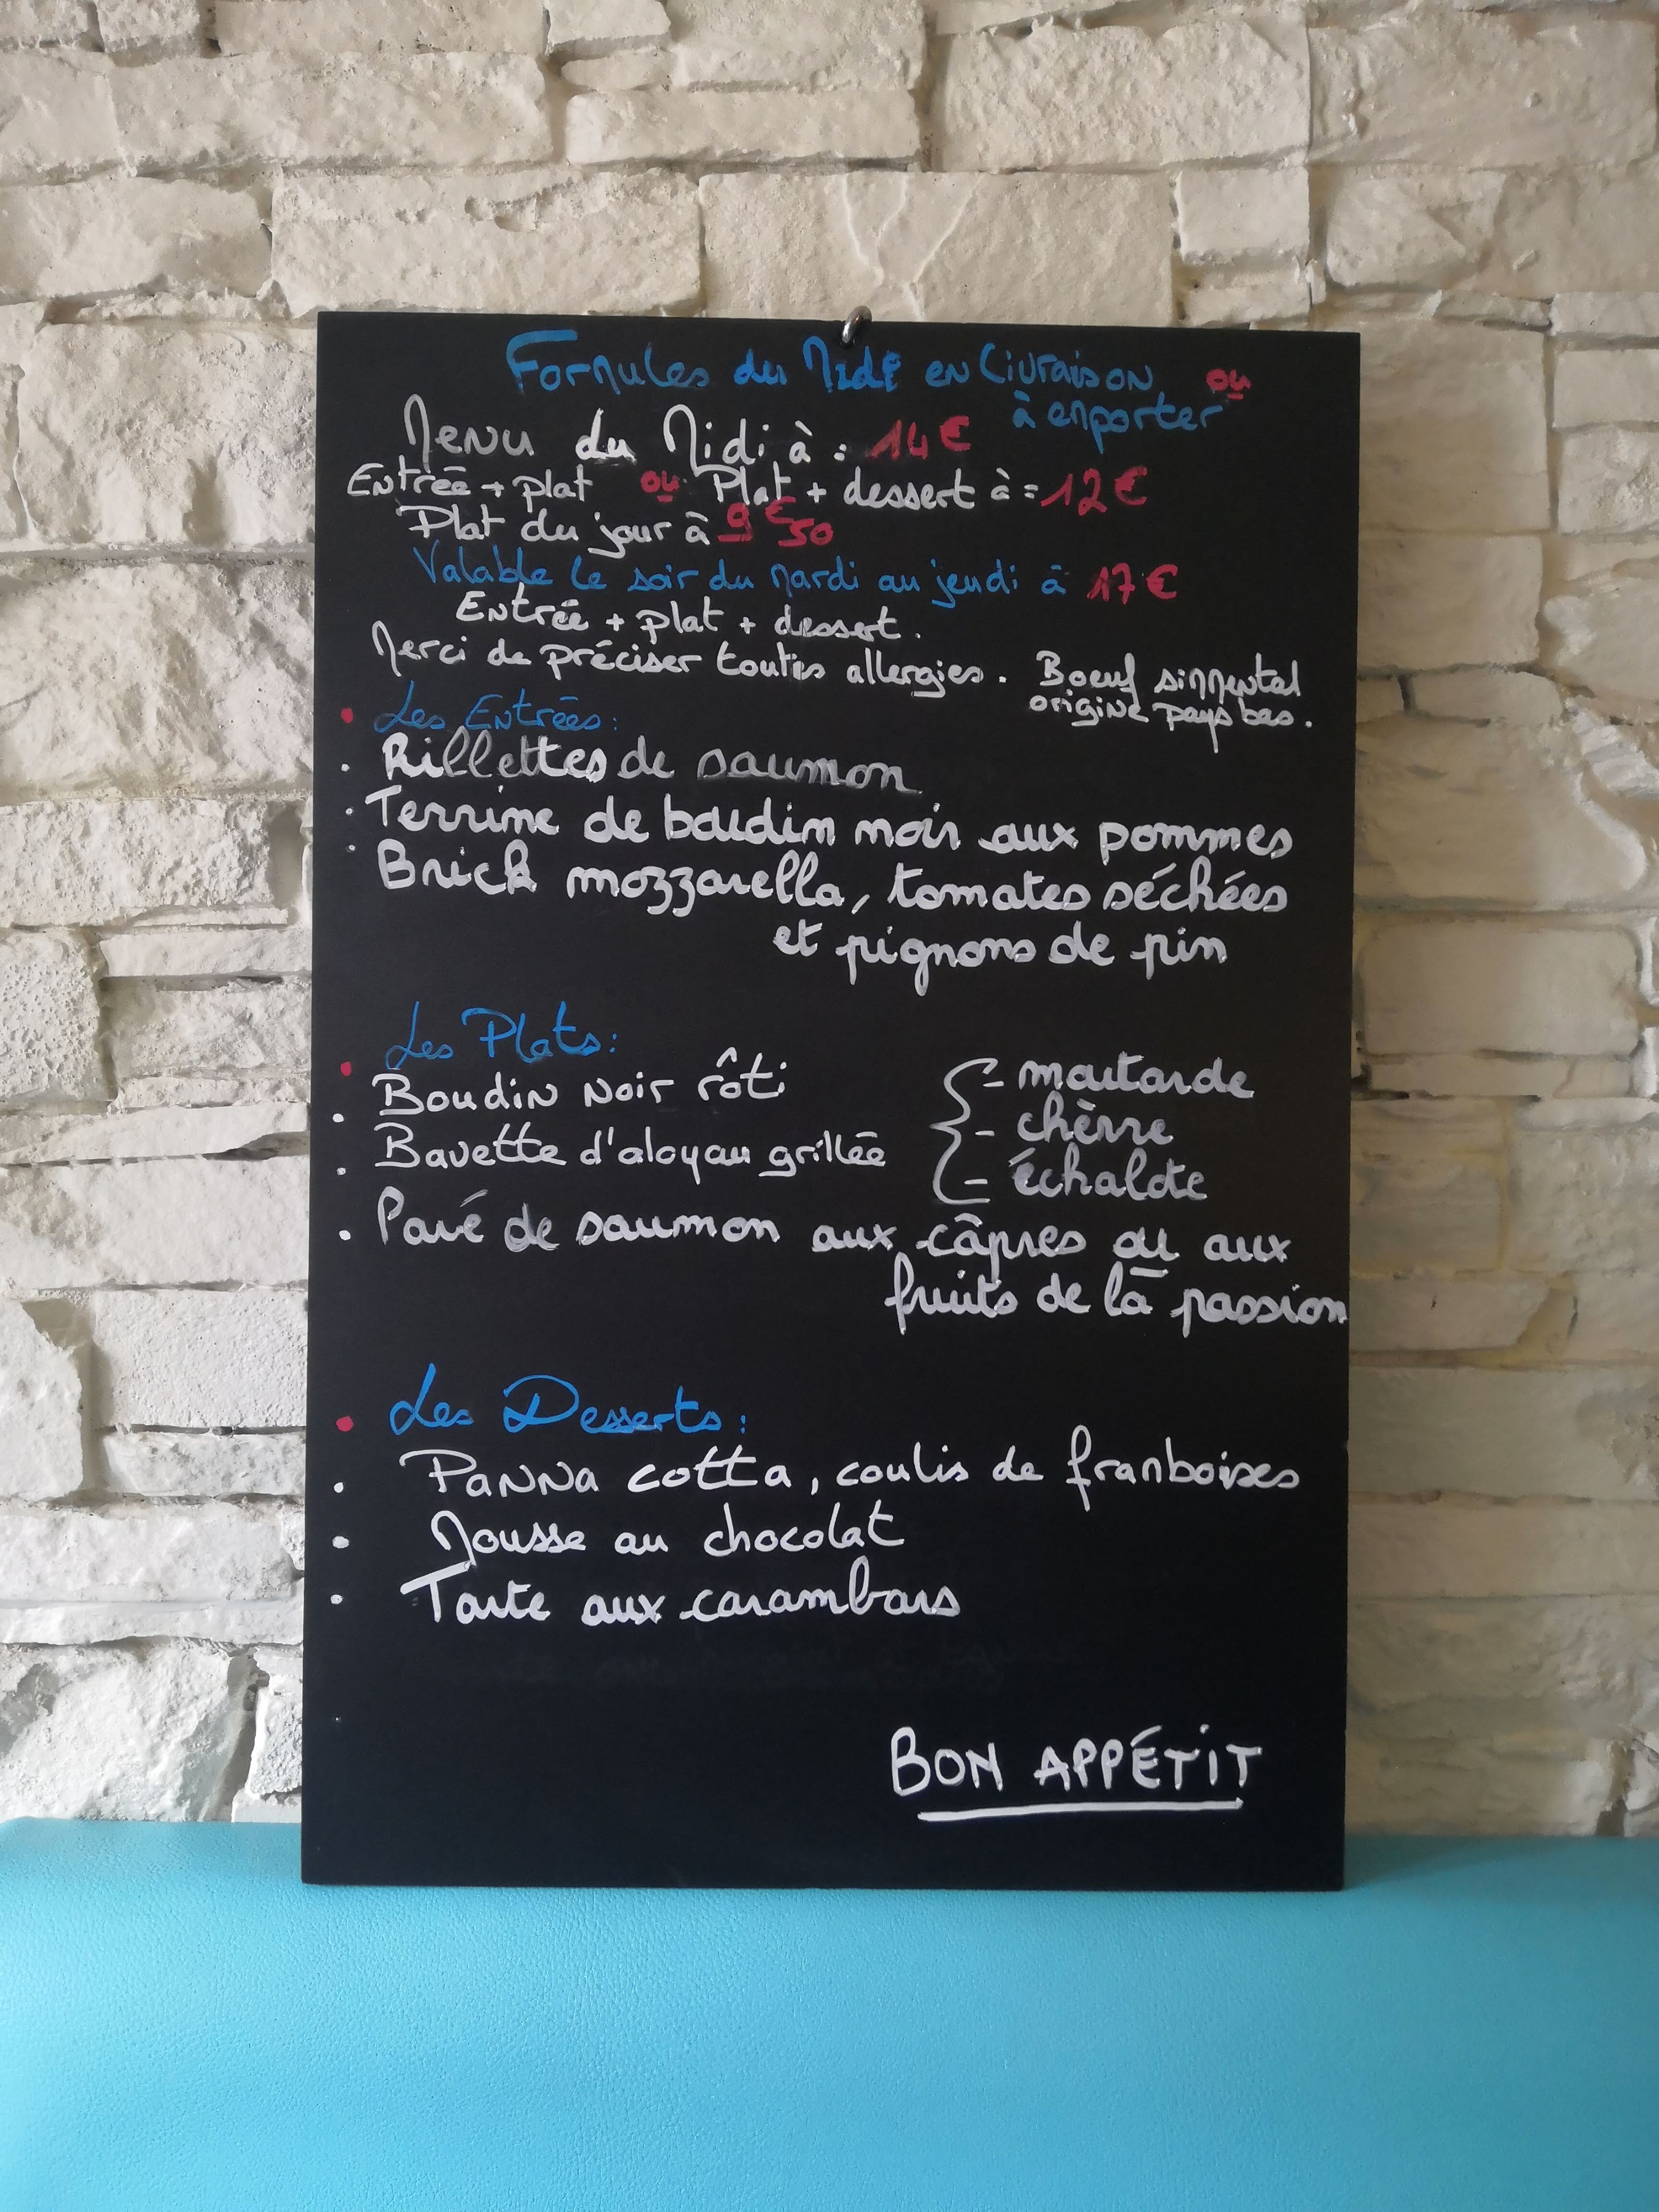 Formules du Midi en livraison ou
à emporter
Menu du Midi à : 14€
Entrée + plat ou Plat + dessert à = 12€
Plat du jour à 9€50
Valable le soir du mardi au jeudi à 17€
Entrée + plat + dessert.
Merci de préciser toutes allergies. Boeuf simmental
origine pays bas.
• Les Entrées:
. Rillettes de saumon
. Terrine de boudin noir aux pommes
. Brick mozzarella, tomates séchées
et pignons de pin
• Les Plats:
. Boudin noir rôti
. Bavette d'aloyau grillée { - moutarde
- chèvre
- échalote
. Pavé de saumon aux câpres ou aux
fruits de la passion
• Les Desserts:
. Panna cotta, coulis de framboises
. Mousse au chocolat
. Tarte aux carambars
BON APPÉTIT